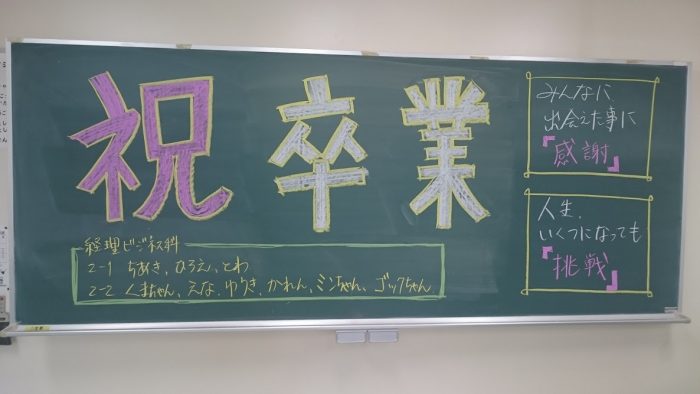 祝卒業
みんなに
出会えた事に
『感謝』
人生、
いくつになっても
『挑戦』
経理ビジネス科
2-1 ちあき、ひろえ、とわ
2-2 くまちゃん、えな、ゆうき、かれん、ミンちゃん、ゴックちゃん